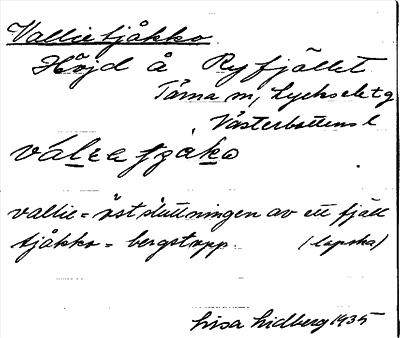 Vallietjåkko.
Höjd å Ryfjället
Tärna sn, Lycksele tg
Västerbottens l
valee
vallie = östsluttningen av ett fjäll
tjåkko = bergstopp. (lapska)
Lisa Lidberg 1935